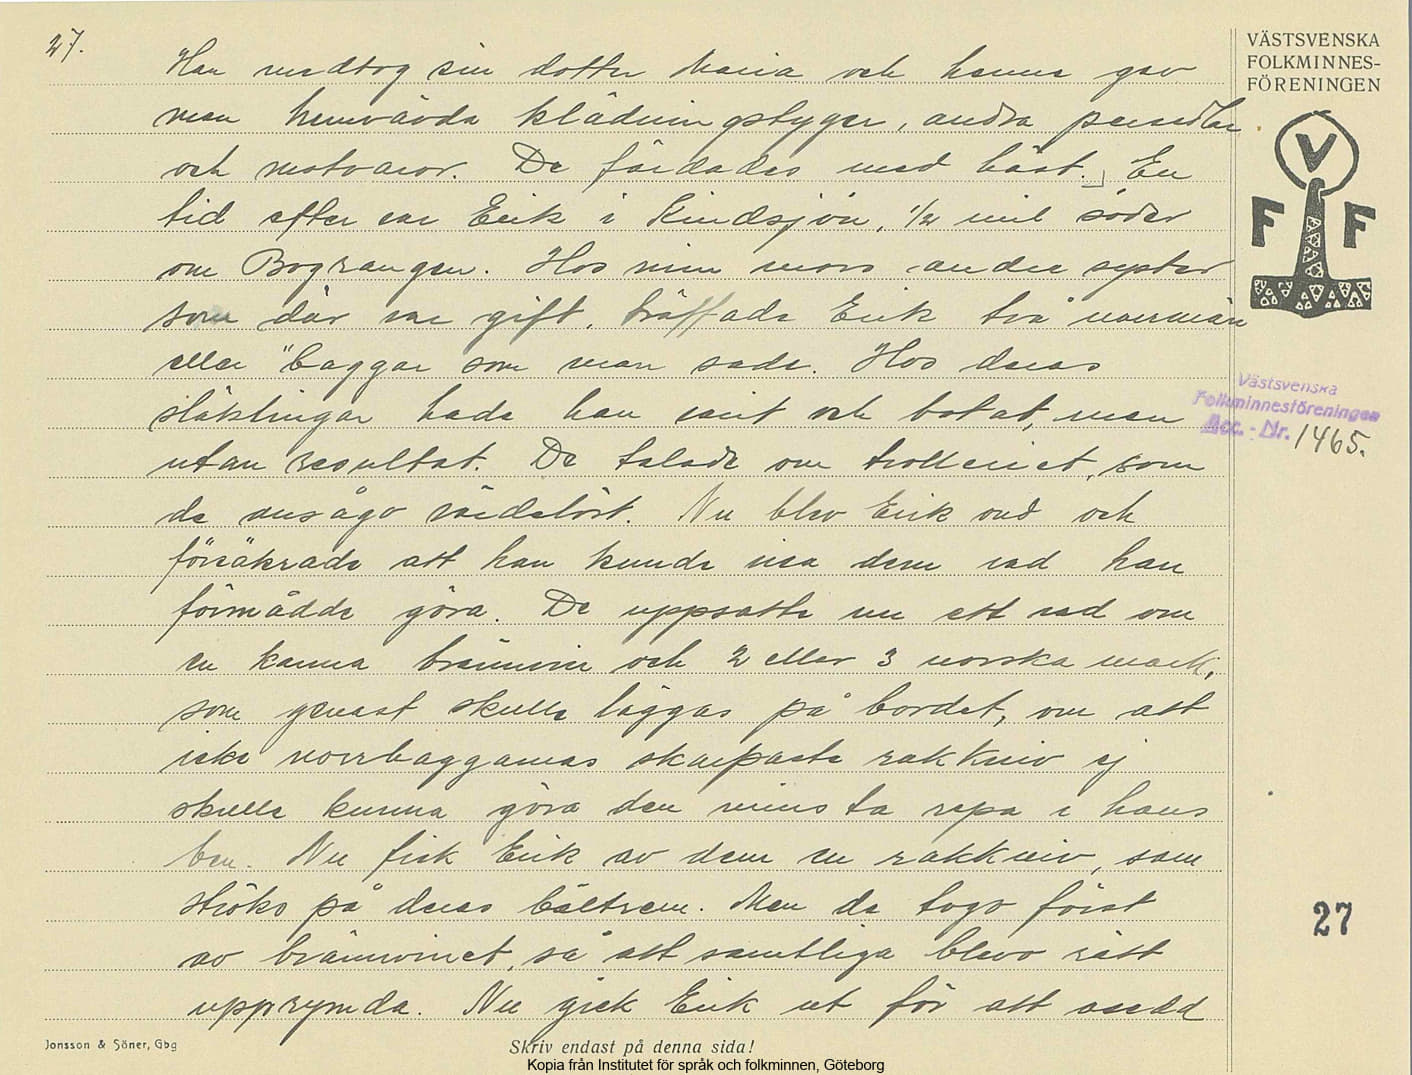 27.
Han medtog sin dotter Maria och henne gav
man hemvävda klädningstyger, andra persedlar
och matvaror. De färdades med häst. En
tid efter var Erik i Rindsjön, 1/2 mil söder
om Bograngen. Hos min mors andra syster
som där var gift, träffade Erik två norrmän
eller "baggar som man sade. Hos deras
släktingar hade han varit och botat, men
utan resultat. De talade om trolleriet, som
de ansågo värdelöst. Nu blev Erik ond och
försäkrade att han kunde visa dem vad han
förmådde göra. De uppsatte nu ett vad om
en kanna brännvin och 2 eller 3 norska mark,
som genast skulle läggas på bordet, om att
icke norrbaggarnas skarpaste rakkniv ej
skulle kunna göra den minsta repa i hans
ben. Nu fick Erik av dem en rakkniv, som
ströks på deras bältrem. Men de togo först
av brännvinet, så att samtliga blevo rätt
upprymda. Nu gick Erik ut för att osedd
VÄSTSVENSKA
FOLKMINNES-
FÖRENINGEN
V
F F
Västsvenska
Folkminnesföreningen
Acc. - Nr. 1465.
27
Jonsson & Söner, Gbg
Skriv endast på denna sida!
Kopia från Institutet för språk och folkminnen, Göteborg